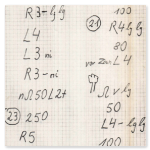 R3-lglg
L4
L3ni
R3-ni
nΩ50L2t
(23) 250
R5
100
(21) R4lglg
80
vor Zau L4
Ω v lg
50
L4-lglg
100